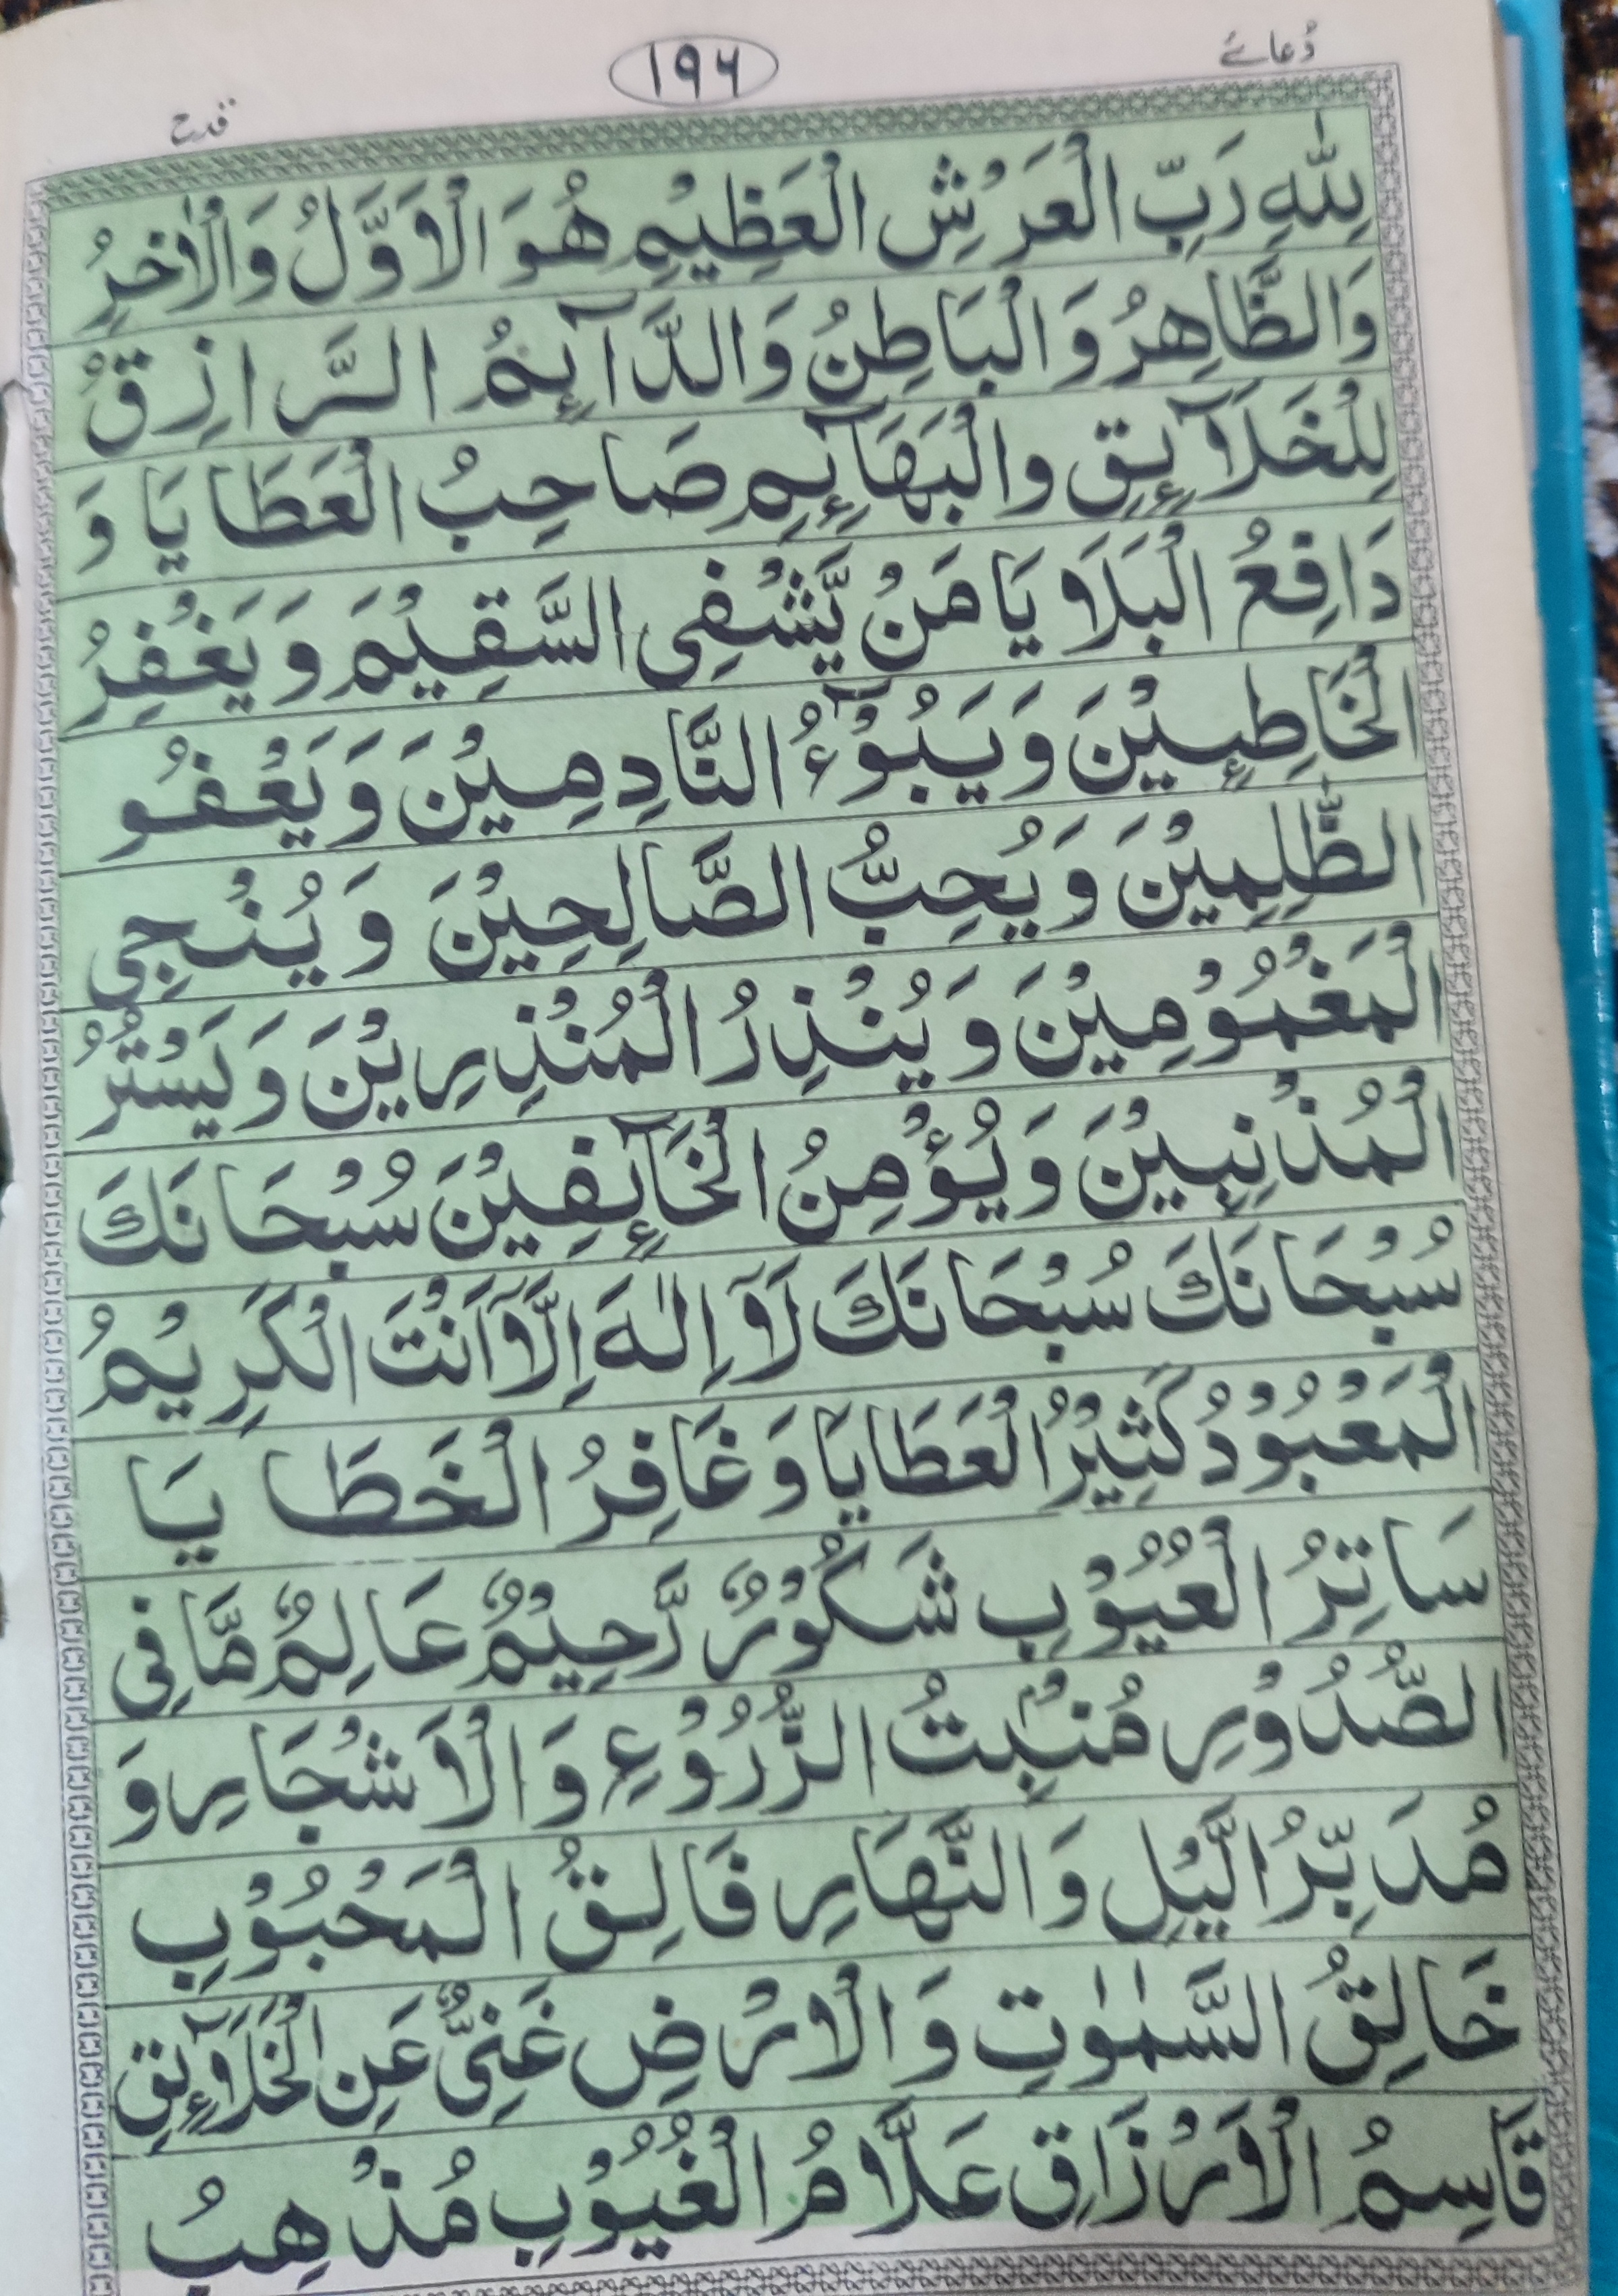 دُعائے
۱۹۶
قدح
لِلّٰهِ رَبِّ الْعَرْشِ الْعَظِيْمِ هُوَ الْاَوَّلُ وَالْاٰخِرُ
وَالظَّاهِرُ وَالْبَاطِنُ وَالدَّآئِمُ الرَّازِقُ
لِلْخَلَآئِقِ والْبَهَآئِمِ صَاحِبُ الْعَطَايَا وَ
دَافِعُ الْبَلَا يَا مَنْ يَّشْفِى السَّقِيْمَ وَيَغْفِرُ
الْخَاطِئِيْنَ وَيَبُوْٓءُ النَّادِمِيْنَ وَيَعْفُو
الظّٰلِمِيْنَ وَيُحِبُّ الصَّالِحِيْنَ وَيُنْجِى
الْمَغْمُوْمِيْنَ وَيُنْذِرُ الْمُنْذِرِيْنَ وَيَسْتُرُ
الْمُذْنِبِيْنَ وَيُؤْمِنُ الْخَآئِفِيْنَ سُبْحَانَكَ
سُبْحَانَكَ سُبْحَانَكَ لَآ اِلٰهَ اِلَّآ اَنْتَ الْكَرِيْمُ
الْمَعْبُوْدُ كَثِيْرُ الْعَطَايَا وَغَافِرُ الْخَطَايَا
سَاتِرُ الْعُيُوْبِ شَكُوْرٌ رَّحِيْمٌ عَالِمٌ مَّافِى
الصُّدُوْرِ مُنْۢبِتُ الزُّرُوْعِ وَالْاَشْجَارِ وَ
مُدَبِّرُ الَّيْلِ وَالنَّهَارِ فَالِقُ الْمَحْبُوْبِ
خَالِقُ السَّمٰوٰتِ وَالْاَرْضِ غَنِىٌّ عَنِ الْخَلَآئِقِ
قَاسِمُ الْاَرْزَاقِ عَلَّامُ الْغُيُوْبِ مُذْهِبُ